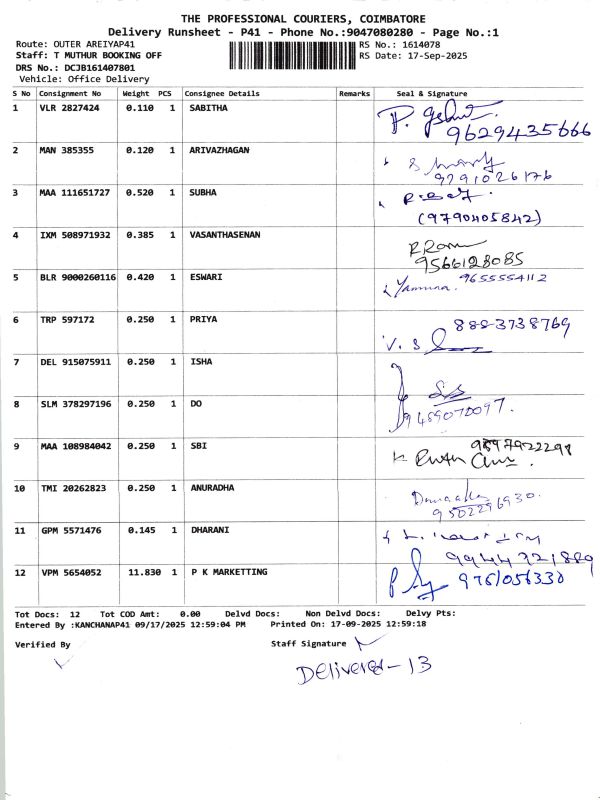 THE PROFESSIONAL COURIERS, COIMBATORE
Delivery Runsheet - P41 - Phone No.:9047080280 - Page No.:1
Route: OUTER AREIYAP41 RS No.: 1614078
Staff: T MUTHUR BOOKING OFF RS Date: 17-Sep-2025
DRS No.: DCJB161407801
Vehicle: Office Delivery
S No Consignment No Weight PCS Consignee Details Remarks Seal & Signature
1 VLR 2827424 0.110 1 SABITHA
9629435666
2 MAN 385355 0.120 1 ARIVAZHAGAN
9791026176
3 MAA 111651727 0.520 1 SUBHA
(9790405842)
4 IXM 508971932 0.385 1 VASANTHASENAN
9566128085
5 BLR 9000260116 0.420 1 ESWARI 9655554112
Yamuna.
6 TRP 597172 0.250 1 PRIYA 8883738769
V. S
7 DEL 915075911 0.250 1 ISHA
8 SLM 378297196 0.250 1 DO
9459070097.
9 MAA 108984042 0.250 1 SBI 9897922298
10 TMI 20262823 0.250 1 ANURADHA
9502296930.
11 GPM 5571476 0.145 1 DHARANI
9944321889
12 VPM 5654052 11.830 1 P K MARKETTING 9761056330
Tot Docs: 12 Tot COD Amt: 0.00 Delvd Docs: Non Delvd Docs: Delvy Pts:
Entered By :KANCHANAP41 09/17/2025 12:59:04 PM Printed On: 17-09-2025 12:59:18
Verified By Staff Signature
Delivered - 13